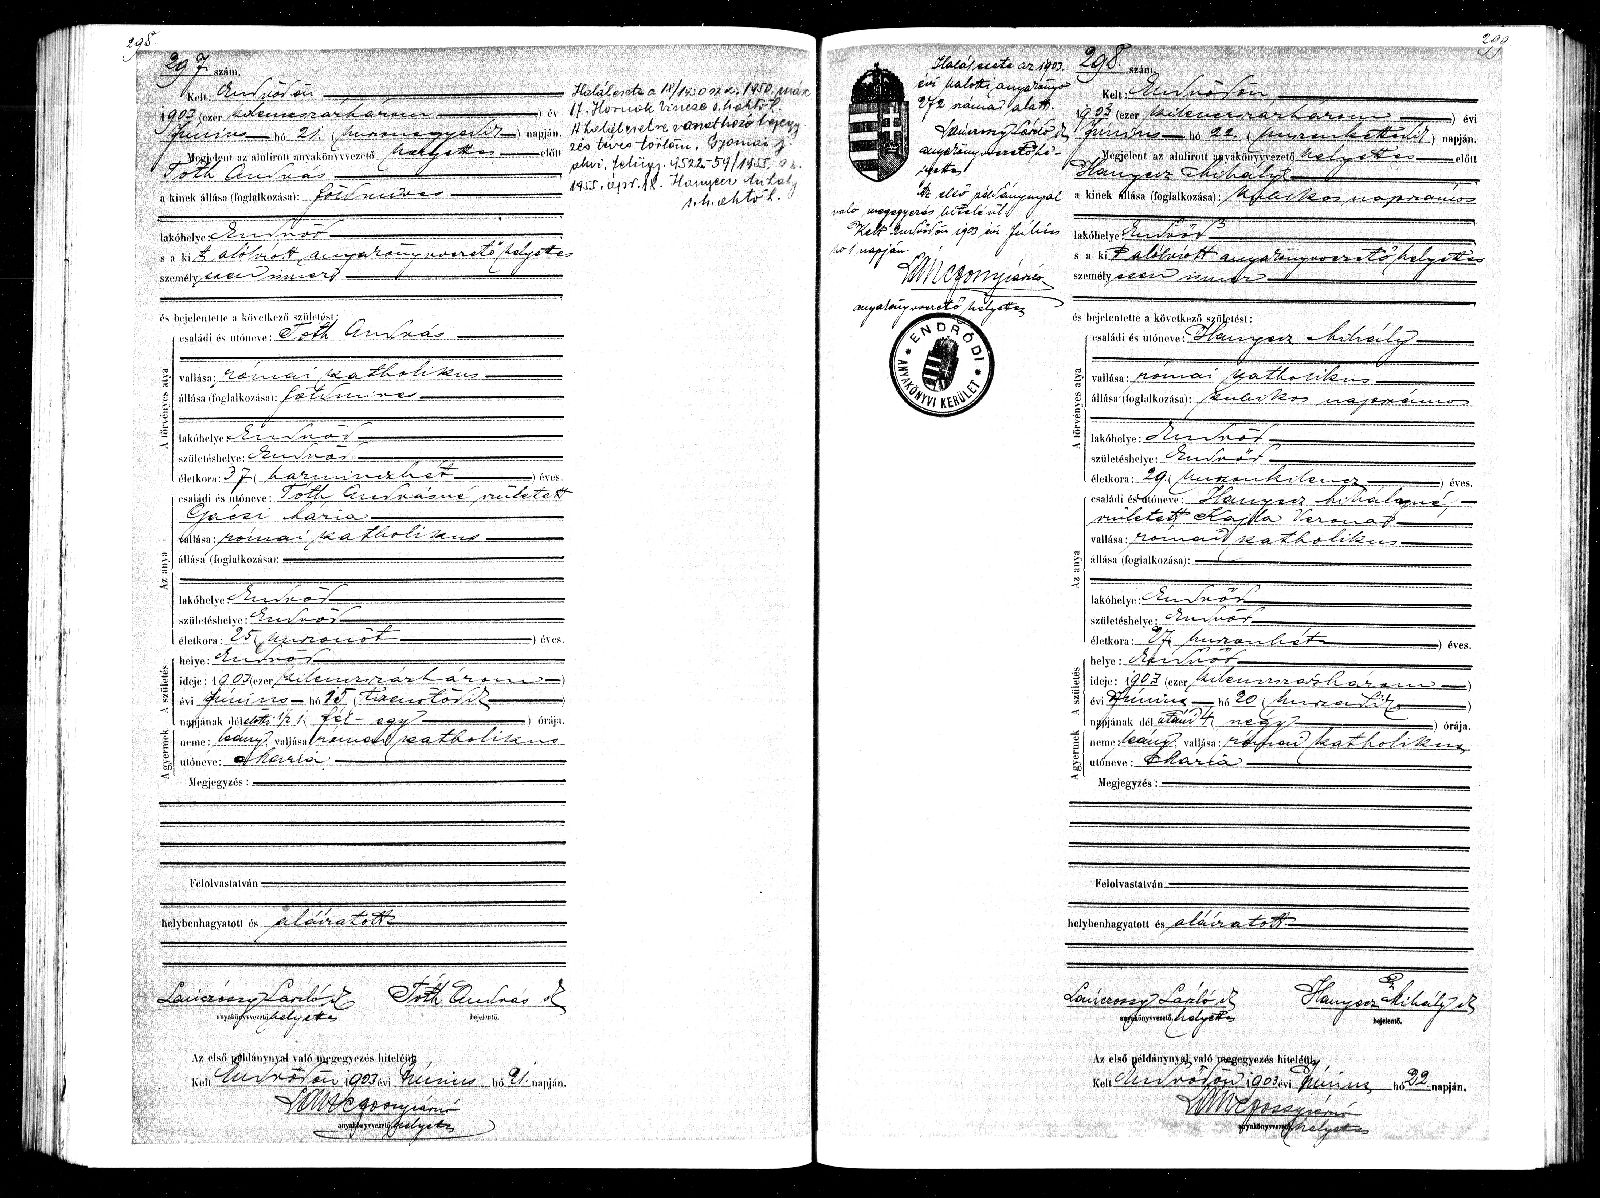 298
297 szám.
Kelt: Endrődön
1903 (ezer kilencszázhárom) év
Június hó 21. (huszonegyedik) napján.
Megjelent az alulirott anyakönyvvezető helyettes előtt
Tóth András
a kinek állása (foglalkozása): földmíves
lakóhelye Endrőd
s a kit alólírott anyakönyvvezető helyettes
személyesen ismer
és bejelentette a következő születést:
A törvényes atya
családi és utóneve: Tóth András
vallása: római katholikus
állása (foglalkozása): földmíves
lakóhelye: Endrőd
születéshelye: Endrőd
életkora: 37 (harminczhét) éves.
Az anya
családi és utóneve: Tóth Andrásné, született
Gácsi Mária
vallása: római katholikus
állása (foglalkozása):
lakóhelye: Endrőd
születéshelye: Endrőd
életkora: 25 (huszonöt) éves.
A születés
helye: Endrőd
ideje: 1903 (ezer kilencszázhárom)
évi Június hó 15 (tizenötödik)
napjának délelőtti 1/2 1. fél-egy) órája.
A gyermek
neme: leány vallása római katholikus
utóneve: Mária
Megjegyzés:
Felolvastatván
helybenhagyatott és aláíratott
Lánczossy László sk Tóth András sk
anyakönyvvezető helyettes bejelentő.
Az első példánynyal való megegyezés hiteléül
Kelt Endrődön 1903 évi Június hó 21. napján.
anyakönyvvezető helyettes
17. Hornok Vincze s.h. aktől.
A haláleseire vonatkozó bejegy
zés téves törlöm. Gyomai j.
9522-59/1955.
1955. ápr. 18. Hanyecz Mihály
299
Haláleseta az 1903.
évi halotti anyakönyv
272 szám alatt.
Lánczossy László sk
anyakönyvvezető he-
lyettes
Az első példánynyal
való megegyezés hiteléül
Kelt Endrődön 1903 évi Július
hó 1 napján
anyakönyvvezető helyettes
ENDRŐDI
ANYAKÖNYVI KERÜLET
298. szám.
Kelt: Endrődön,
1903 (ezer kilencszázhárom) évi
Június hó 22. (huszonkettedik) napján.
Megjelent az alulirott anyakönyvvezető helyettes előtt
Hanyecz Mihály
a kinek állása (foglalkozása): kubikos napszámos
lakóhelye Endrőd
s a kit alólírott anyakönyvvezető helyettes
személyesen ismer
és bejelentette a következő születést:
A törvényes atya
családi és utóneve: Hanyecz Mihály
vallása: római katholikus
állása (foglalkozása): kubikos napszámos
lakóhelye: Endrőd
születéshelye: Endrőd
életkora: 29. (huszonkilencz) éves.
Az anya
családi és utóneve: Hanyecz Mihályné,
született Kajla Verona
vallása: római katholikus
állása (foglalkozása):
lakóhelye: Endrőd
születéshelye: Endrőd
életkora: 27 (huszonhét) éves.
A születés
helye: Endrőd
ideje: 1903 (ezer kilencszázhárom)
évi Június hó 20 (huszadik)
napjának dél utáni 4 (négy) órája.
A gyermek
neme: leány vallása: római katholikus
utóneve: Mária
Megjegyzés:
Felolvastatván
helybenhagyatott és aláíratott
Lánczossy László sk Hanyecz Mihály sk
anyakönyvvezető helyettes bejelentő.
Az első példánynyal való megegyezés hiteléül
Kelt Endrődön 1903 évi Június hó 22 napján.
anyakönyvvezető helyettes